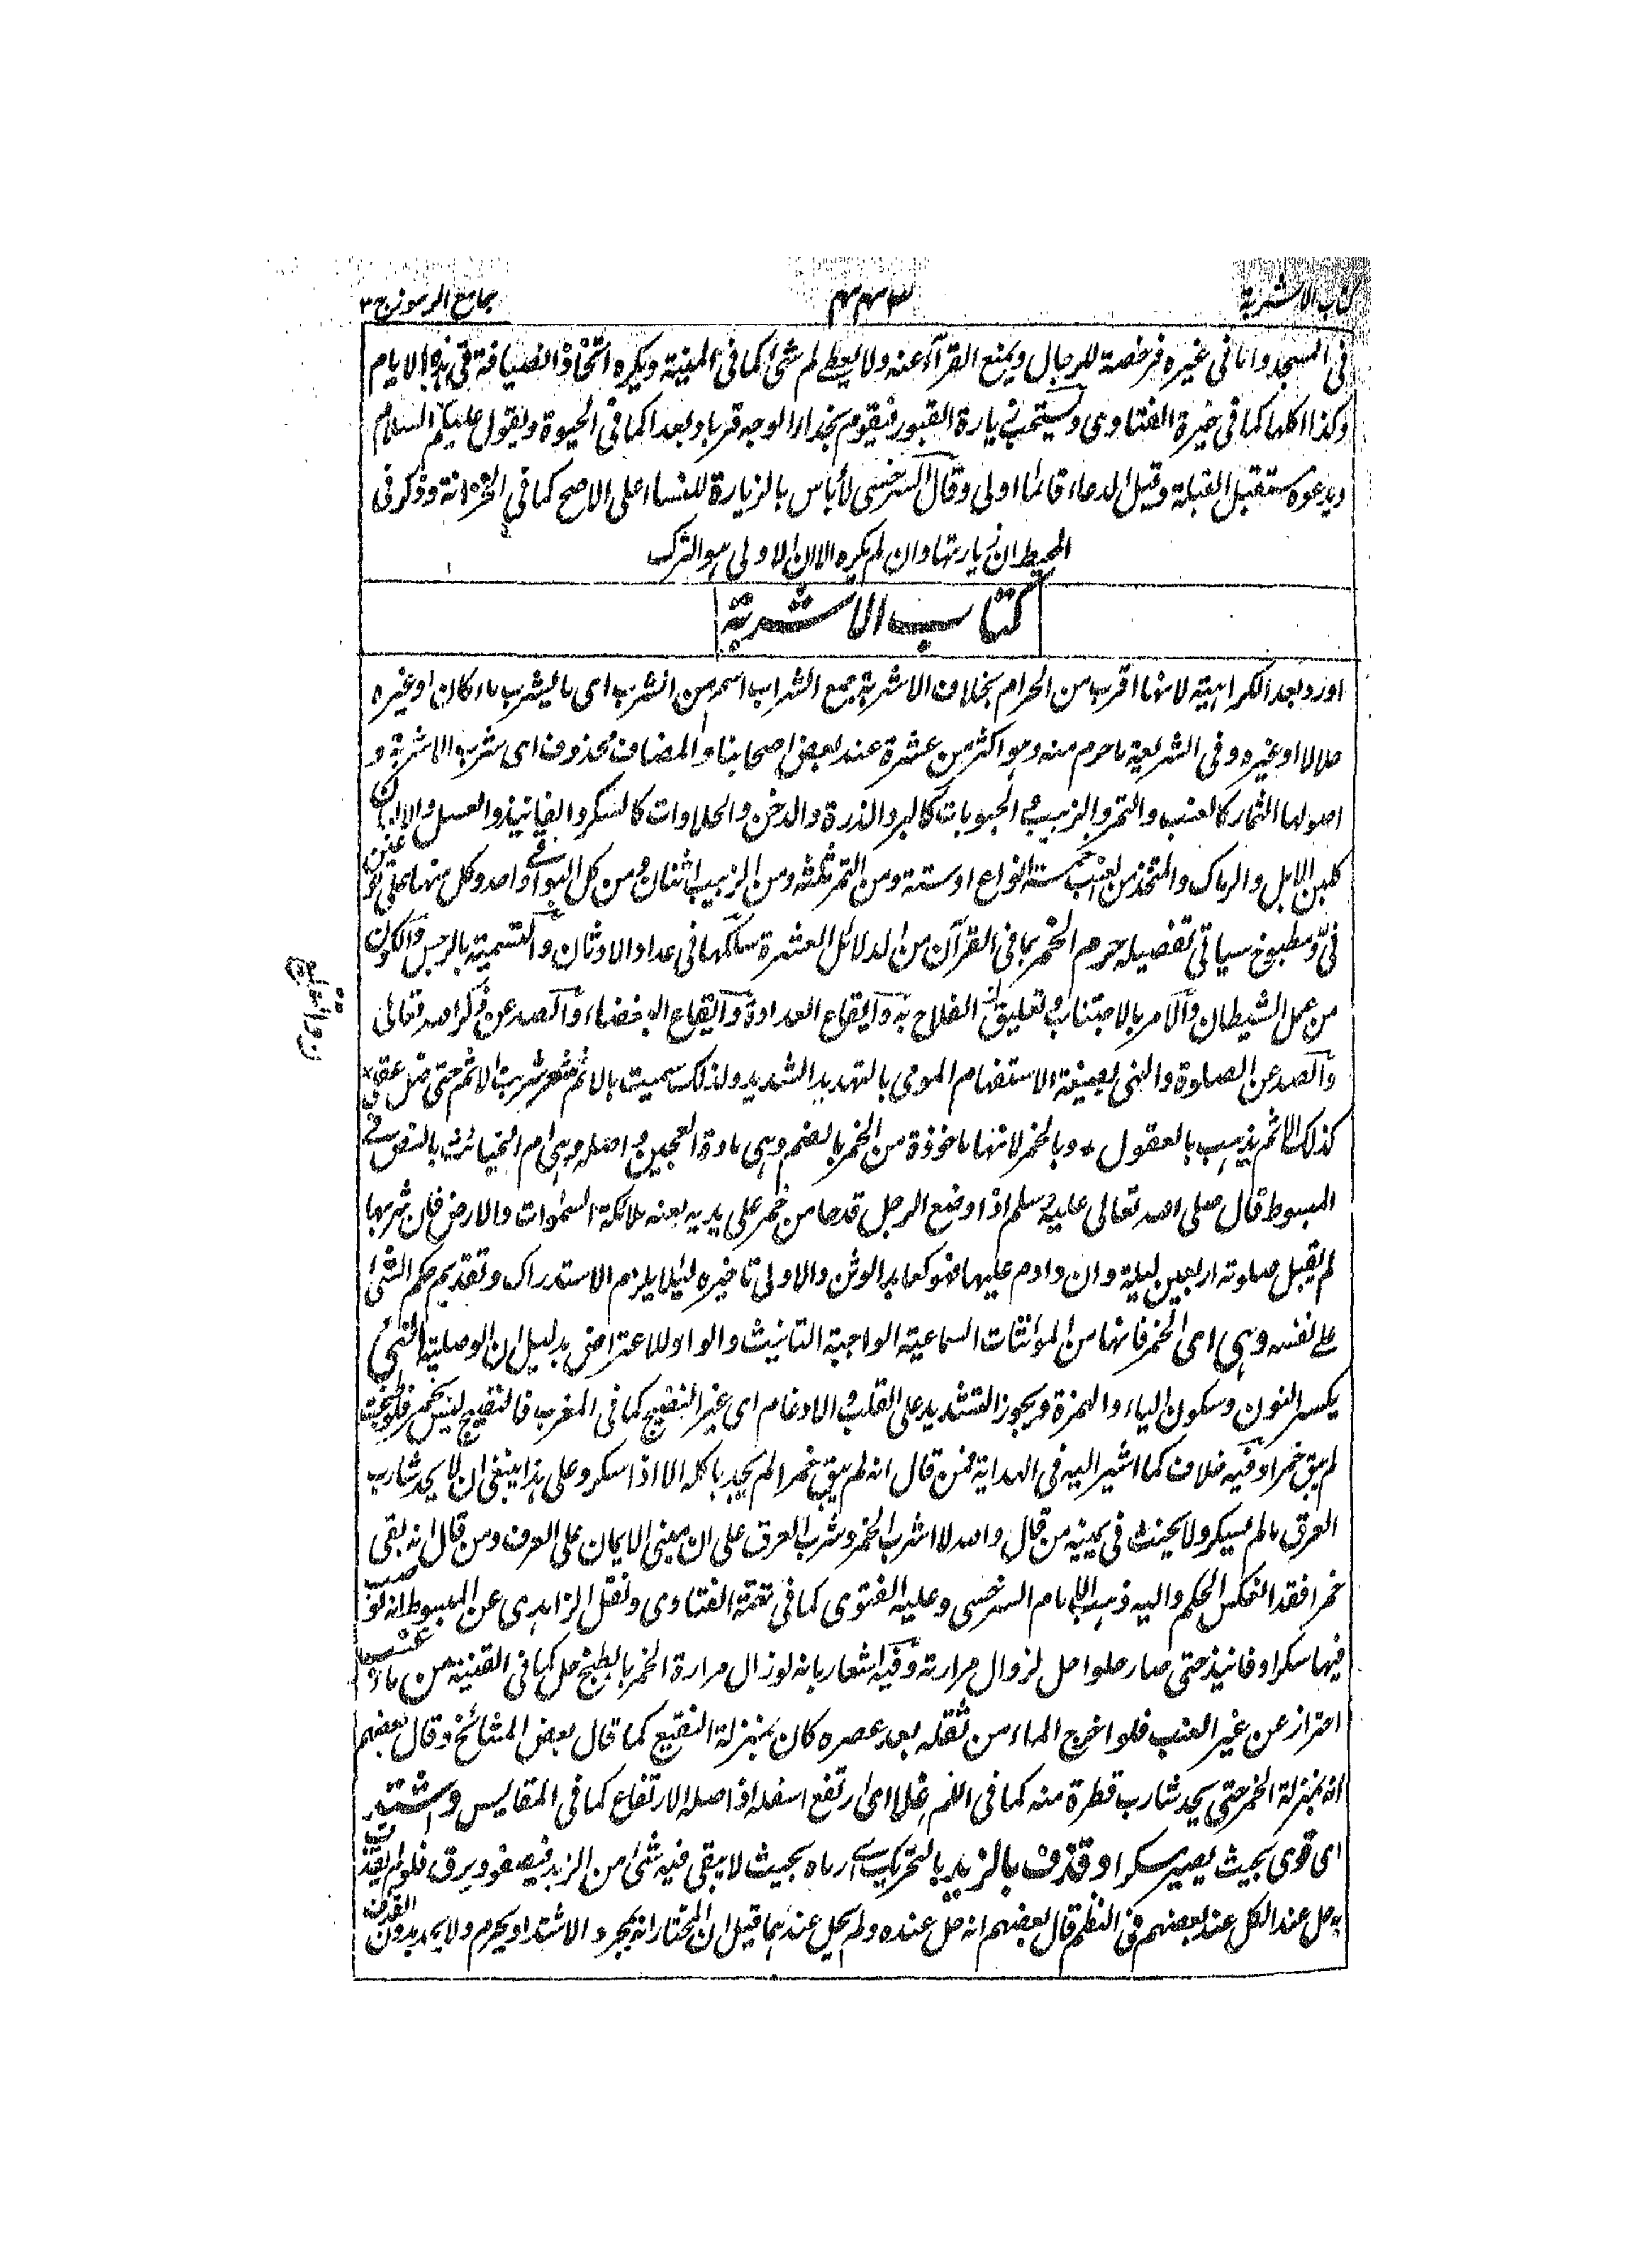 كتاب الاشربة
٣٤٤
جامع الرموز ج ٣
فى المسجد واما فى غيره فرخصة للرجال ويمنع القرآءعنه ولا يعطى لهم شئ كما فى المنية ويكره اتخاذ الضيافة فى هذه الايام
وكذا اكلها كما فى خيرة الفتاوى ويستحب زيارة القبور فيقوم بحذاء الوجه قربا وبعدا كما فى الحيوة ويقول عليكم السلام
ويدعو مستقبل القبلة وقيل الدعاء قائما اولى وقال السرخسى لا بأس بالزيارة للنساء على الاصح كما فى الخزانة وذكر فى
المحيط ان زيارتها وان لم يكره الا ان الاولى هو الترك
كتاب الاشربة
اورد بعد الكراهية لانها اقرب من الحرام بخلاف الاشربة جمع الشراب اسم من الشرب اى ما يشرب ماء كان اوغيره
حلالا اوغيره وفى الشريعة ما حرم منه وهو اكثر من عشرة عند بعض اصحابنا والمضاف محذوف اى شرب الاشربة و
اصولها الثمار كالعنب والتمر والزبيب والحبوبات كالبر والذرة والدخن والحلاوات كالسكر والفانيذ والعسل والالبان
كلبن الابل والرماك والمتخذ من العنب خمسة انواع اوستة ومن التمر ثلثة ومن الزبيب اثنان ومن كل البواقى واحد وكل منها على نوعين
نئ ومطبوخ سياتى تفصيله حرم الخمر بما فى القرآن من الدلائل العشرة سلكها فى عداد الاوثان والتسمية بالرجس والكون
من عمل الشيطان والامر بالاجتناب وتعليق الفلاح به وايقاع العداوة وايقاع البغضاء والصد عن ذكر الله تعالى
والصد عن الصلوة والنهى بصيغة الاستفهام المومى بالتهديد الشديد ولذلك سميت بالاثم شعر شربت الاثم حتى ضل عقلى
كذلك الاثم يذهب بالعقول ٭ وبالخمر لانها ماخوذة من الخمر بالضم وهى مادة العجين واصله وهى ام الخبائث بالنص فى
المبسوط قال صلى الله تعالى عليه وسلم اذا وضع الرجل قدحا من خمر على يديه لعنه ملائكة السموات والارض فان شربها
لم يقبل صلوته اربعين ليلة وان داوم عليها فهو كعابد الوثن والاولى تاخيره لئلا يلزم الاستدراك وتقديم حكم الشئ
على نفسه وهى اى الخمر فانها من المؤنثات السماعية الواجبة التانيث والواو للاعتراض بدليل ان الوصلية النئ
بكسر النون وسكون الياء والهمزة ويجوز التشديد على القلب والادغام اى غير النضيج كما فى المغرب فالنضيج ليس بخمر فلو طبخت
لم يبق خمرا وفيه خلاف كما اشير اليه فى الهداية فمن قال انه لم يبق خمرا لم يحد باكله الا اذا سكر وعلى هذا ينبغى ان لا يحد شارب
العرق ما لم يسكر ولا يحنث فى يمينه من قال والله لا اشرب الخمر وشرب العرق على ان مبنى الايمان على العرف ومن قال انه بقى
خمرا فقد انعكس الحكم واليه ذهب الامام السرخسى وعليه الفتوى كما فى تتمة الفتاوى ونقل الزاهدى عن المبسوط انه لو صب
فيها سكرا وفانيذ حتى صار حلوا حل لزوال مرارته وفيه اشعار بانه لو زال مرارة الخمر بالطبخ حل كما فى القنية من ماء عنب
احتراز عن غير العنب فلو اخرج الماء من ثقله بعد عصره كان بمنزلة النقيع كما قال بعض المشائخ وقال بعضهم
انه بمنزلة الخمر حتى يحد شارب قطرة منه كما فى النظم غلا اى ارتفع اسفله اذ اصله الارتفاع كما فى المقاييس واشتد
اى قوى بحيث يصير مسكرا وقذف بالزبد بالتحريك اى رماه بحيث لا يبقى فيه شئ من الزبد فيصفو ويرق فلو لم يقذف
به حل عند الكل عند بعضهم فى النظم قال بعضهم انه حل عنده ولم يحل عندهما قيل ان المختار انه بمجرد الاشتداد يحرم ولا يحد بدون القذف